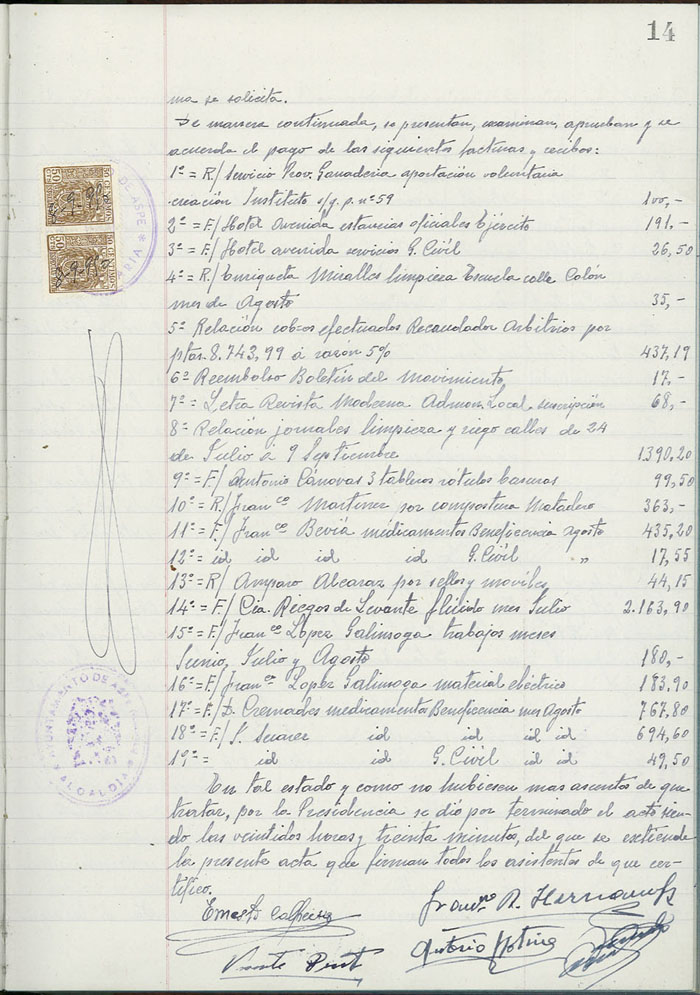 14
ma se solicita.
De manera continuada, se presentan, examinan, aprueban y se
acuerda el pago de las siguientes facturas y recibos:
1º = R/ Servicio Prov. Ganaderia aportación voluntaria
creación Instituto s/g. p. nº 59 100,-
2º = F/ Hotel Avenida estancias oficiales Ejército 191,-
3º = F/ Hotel avenida servicios G. Civil 26,50
4º = R/ Enriqueta Miralles limpieza Escuela calle Colón
mes de Agosto 35,-
5º Relación cobros efectuados Recaudador Arbitrios por
ptas. 8.743,99 á razón 5% 437,19
6º Reembolso Boletín del Movimiento 17,-
7º = Letra Revista Moderna Admon. Local, suscripción 68,-
8º = Relación jornales limpieza y riego calles de 24
de Julio a 9 Septiembre 1390,20
9º = F/ Antonio Cánovas 3 tableros rótulos basuras 99,50
10º = R/ Franco Martinez por compostura Matadero 363,-
11º = F/ Franco Beviá medicamentos Beneficencia agosto 435,20
12º = id id id id G. Civil " 17,55
13º = R/ Amparo Alcaraz por sellos y moviles 44,15
14º = F/ Cía. Riegos de Levante flúido mes Julio 2.163,90
15º = F/ Franco López Galinsoga trabajos meses
Junio, Julio y Agosto 180,-
16º = F/ Franco Lopez Galinsoga material eléctrico 183,90
17º = F/ D. Cremades medicamentos Beneficencia mes Agosto 767,80
18º = F/ S. Suarez id id id id 694,60
19º = id G. Civil id id 49,50
En tal estado y como no hubiesen mas asuntos de que
tratar, por la Presidencia se dió por terminado el acto sien-
do las veintidos horas y treinta minutos, del que se extiende
la presente acta que firman todos los asistentes de que cer-
tifico.
Ernesto
Antonio Molina
Vicente
50
8-9-950
50
8-9-950
DE ASPE
AYUNTAMIENTO DE ASPE
ALCALDIA